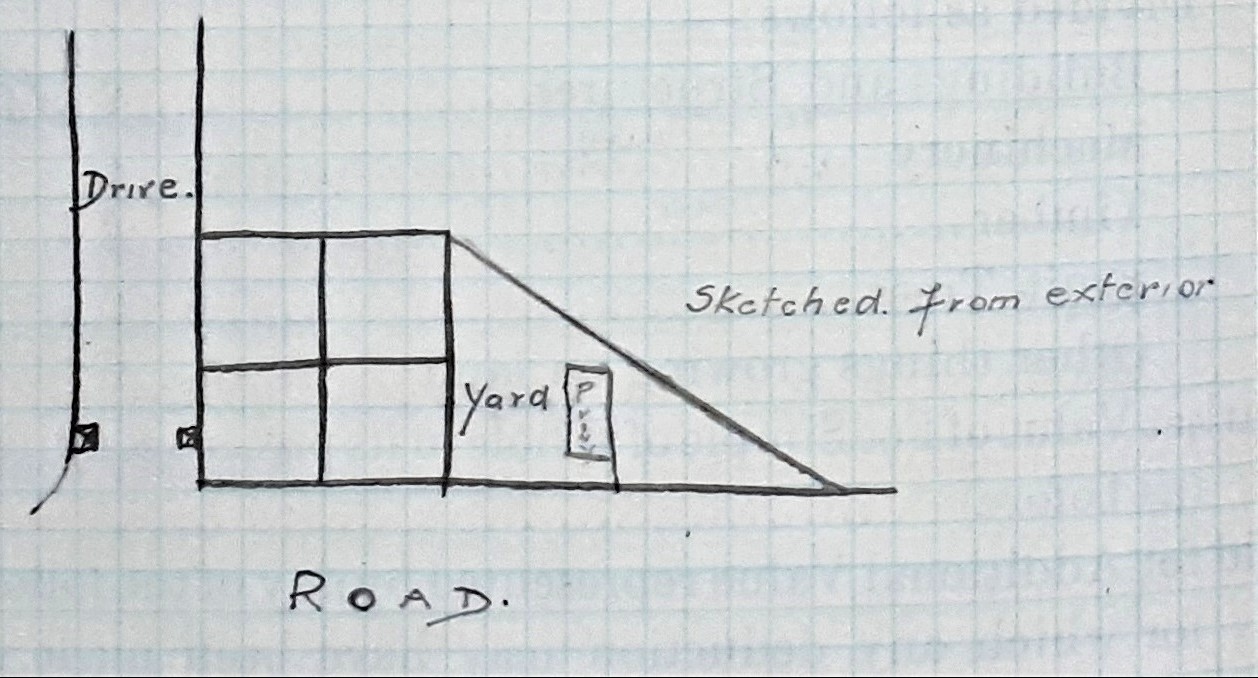 Drive.
Sketched. from exterior
Yard
Privy
ROAD.